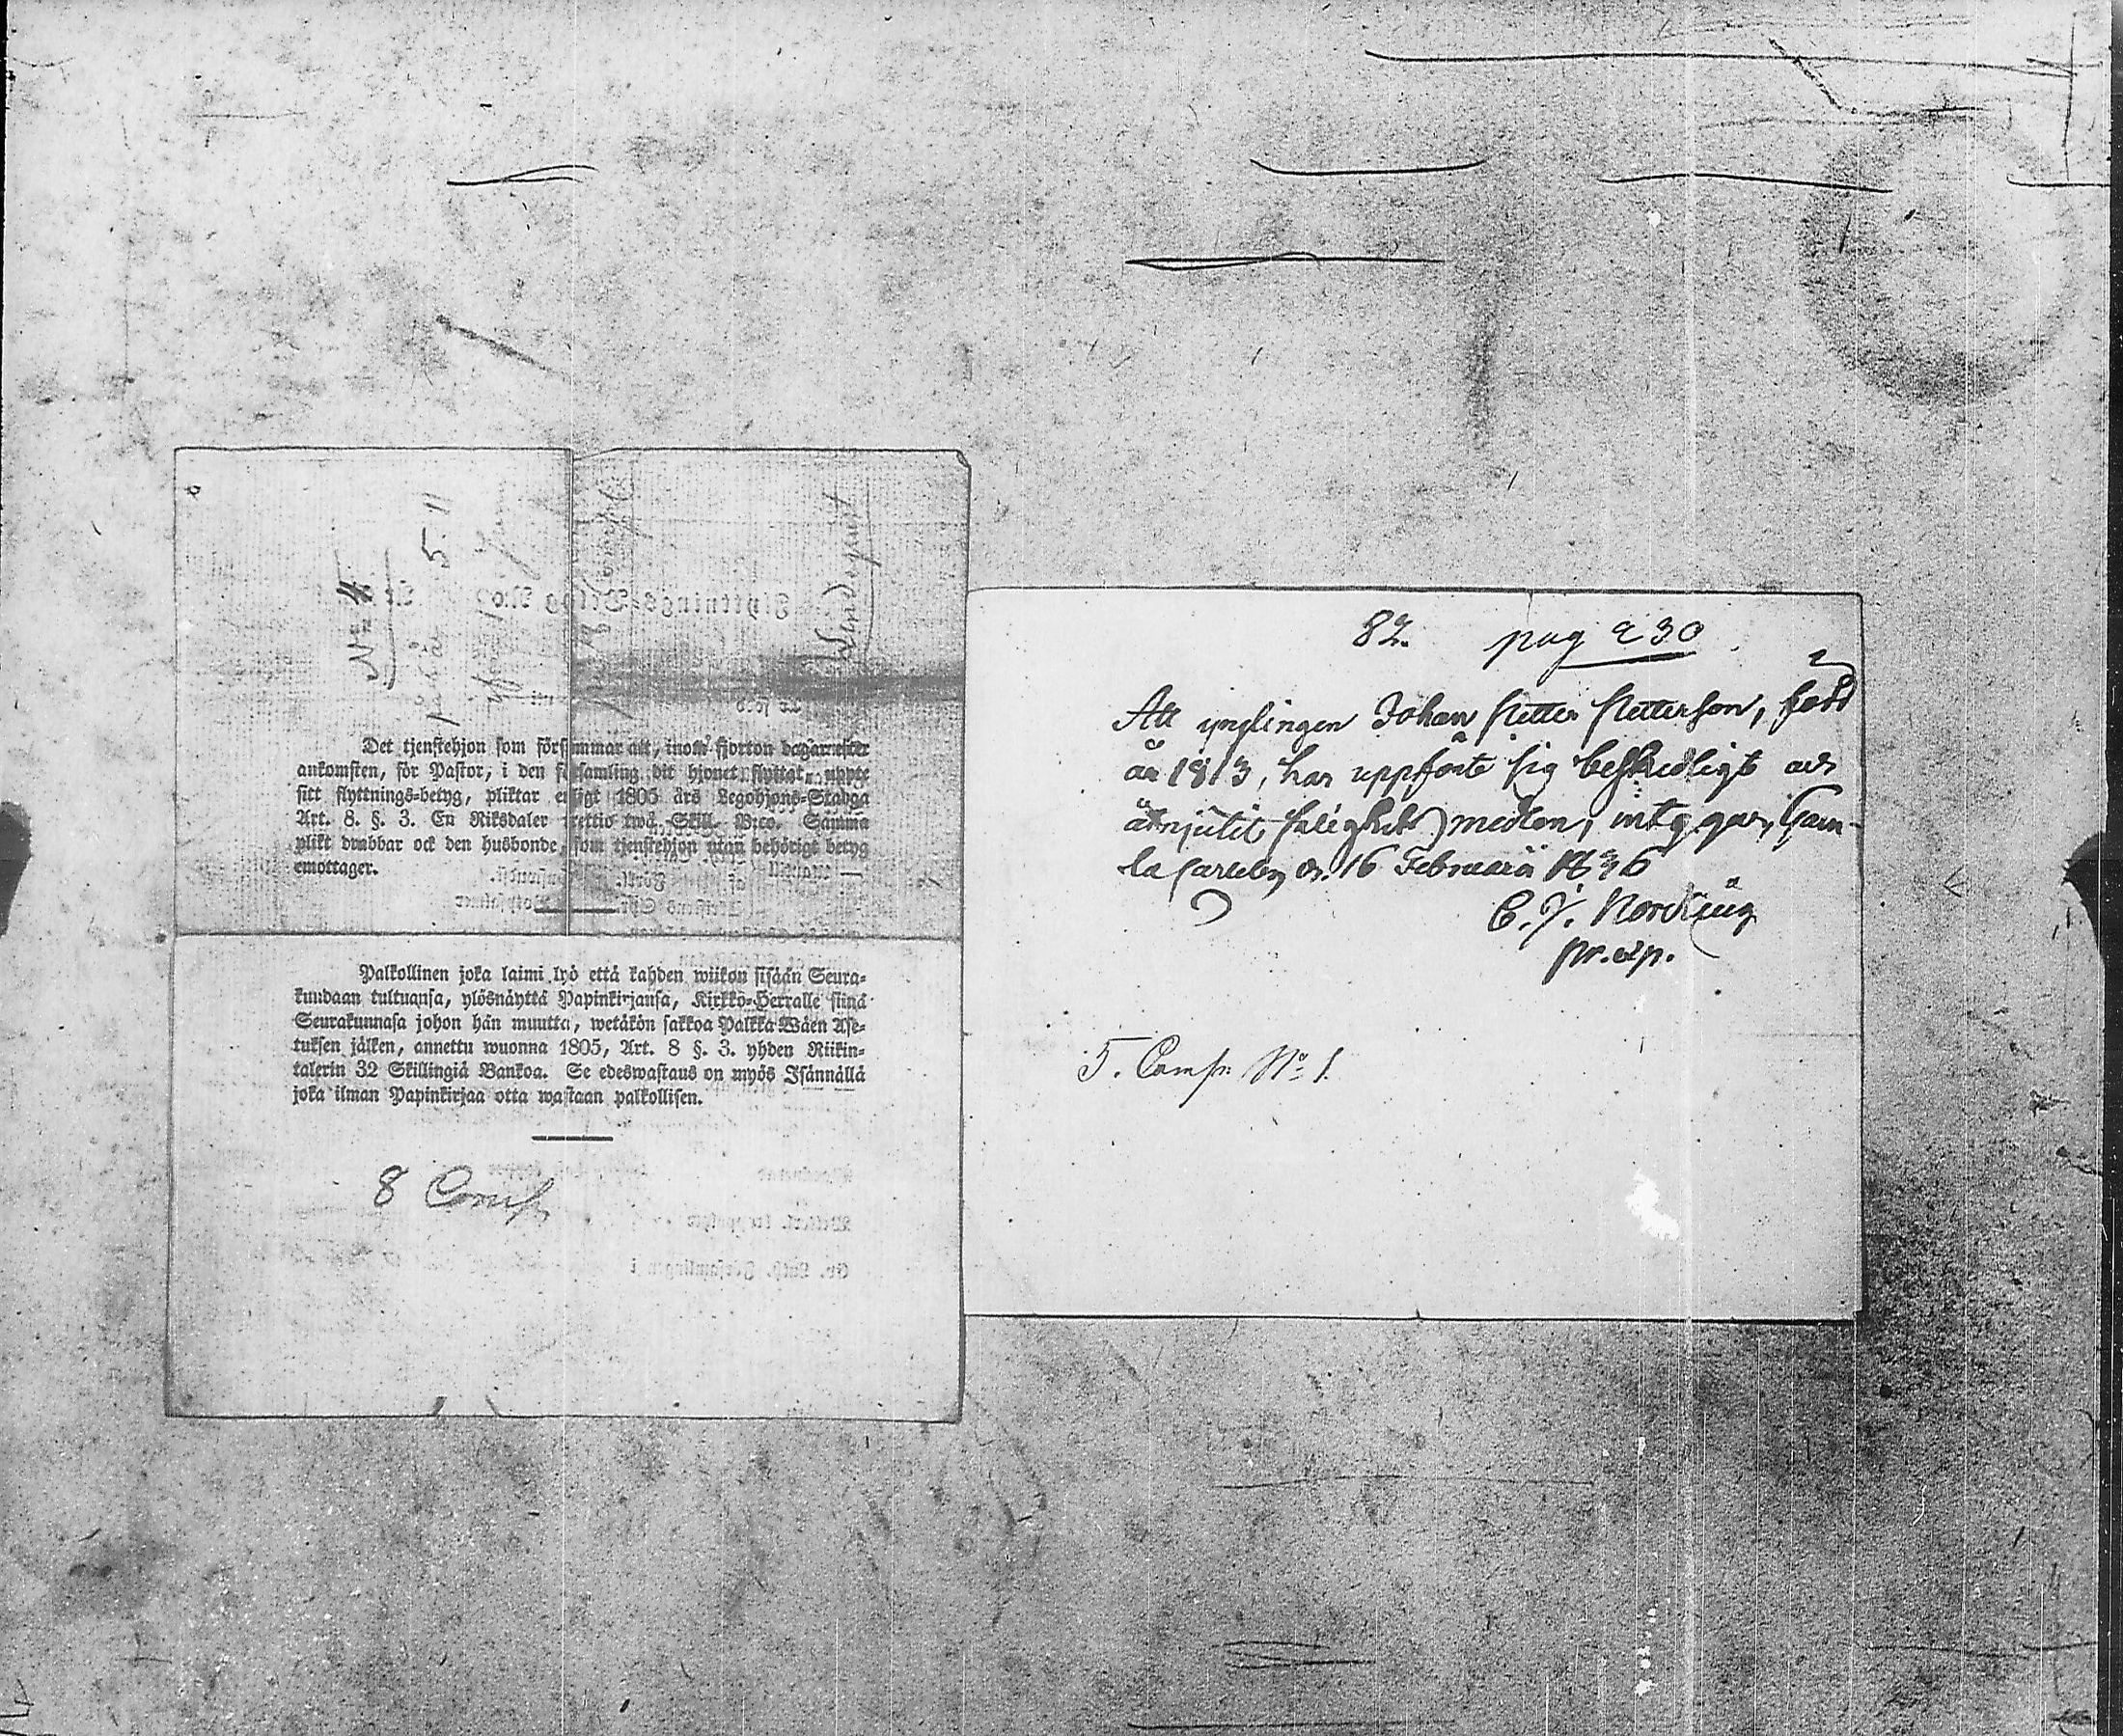 N:o 4
5. 11
Det tjenstehjon som försummar att, inom fjorton dagar efter
ankomsten, för Pastor, i den församling dit hjonet flyttat, uppte
sitt flyttnings-betyg, pliktar enligt 1805 års Legohjons-Stadga
Art. 8. §. 3. En Riksdaler trettio twå Skill. B:co. Samma
plikt drabbar ock den husbonde, som tjenstehjon utan behörigt betyg
emottager.
Palkollinen joka laimi lyö että kahden wiikon sisään Seura-
kundaan tultuansa, ylösnäyttä Papinkirjansa, Kirkko-Herralle siinä
Seurakunnasa johon hän muutta, wetäkön sakkoa Palkka Wäen Ase-
tuksen jälken, annettu wuonna 1805, Art. 8 §. 3. yhden Riikin-
talerin 32 Skillingiä Bankoa. Se edeswastaus on myös Isännällä
joka ilman Papinkirjaa otta wastaan palkollisen.
8 Comp
82. pag 230
Att ynglingen Johan Petter Petterson, född
år 1813, har uppfört sig beskedligt och
åtnjutit salighets medlen, intygar, Gam-
la Carleby d. 16 Februarii 1836
C. J. Norrking
pr. exp.
5. Comp: N:o 1.